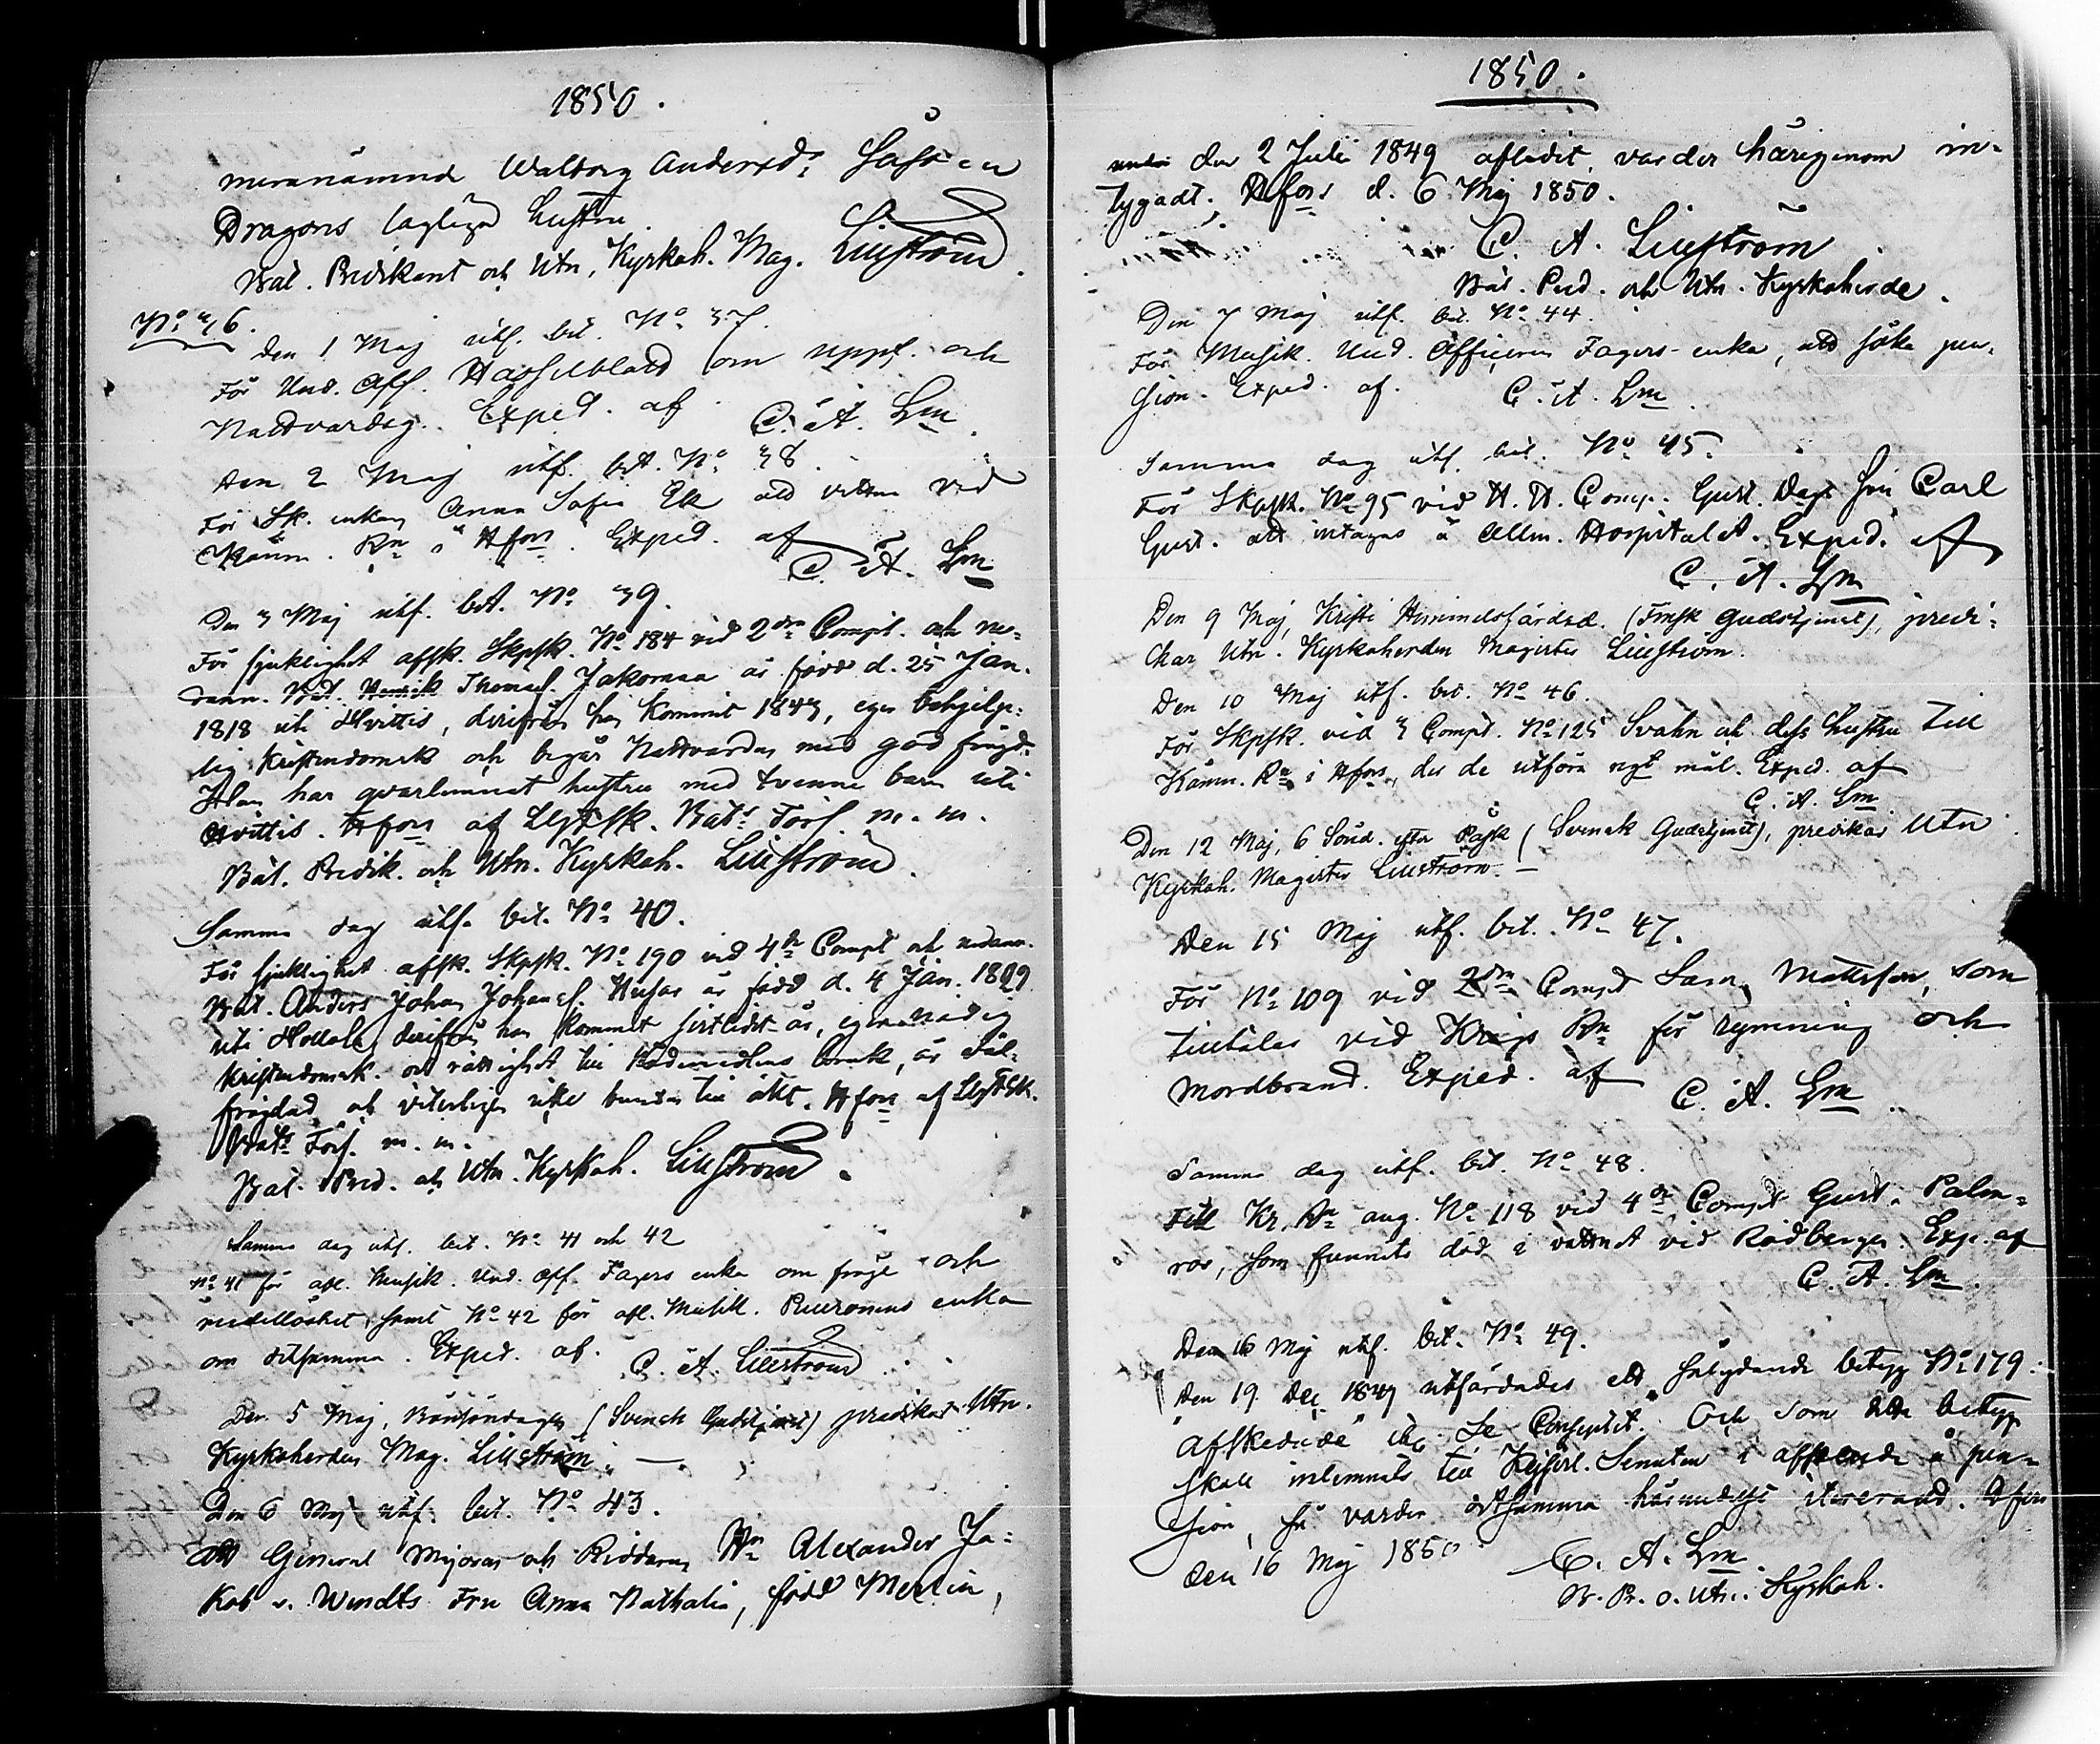 1850.
meranämnd Walborg Andersd:
Dragons lagliga hustru.
Bat. Predikant och Utn. Kyrkoh. Mag. Liliström.
No 36.
Den 1 Maj utf. bet. No 37.
För Und. Off. Hasselblatt om uppf. och
Nattvardsg. Exped. af C. A. Lm.
Den 2 Maj utf. bet. No 38.
För Sk. enkan Anna Sofia Ek att vittna vid
Kämn. Rn i Hfors. Exped. af
C. A. Lm
Den 3 Maj utf. bet. No 39.
För sjuklighet affsk. Skpsk. No 184 vid 2dra Comp. och ne-
dann. Bat. Thomas Jakomaa är född d. 25 Jan.
1818 uti Hvittis, derifrån han kommit 1843, eger behjelp-
lig Kristendomsk. och begår Nattvarden med god frejd.
Han har qvarlemnat hustru med tvenne barn uti
Hvittis. Hfors af Bats Förs. m. m.
Bat. Predik. och Utn. Kyrkoh. Liliström.
Samma dag utf. bet. No 40.
För sjuklighet affsk. Skpsk. No 190 vid 4de Compt och nedann.
Bat. Anders Johan Johansf. Husar är född d. 4 Jan. 1809
uti Hollola, derifrån han kommit sistledit år, eger nödig
Kristendomsk. och rättighet till Nådemedlens bruk, är väl-
frejdad och viterligen icke bunden till äkt. Hfors af
Bats Förs. m. m.
Bat. Pred. och Utn. Kyrkoh. Liliström.
Samma dag utf. bet. No 41 och 42
No 41 för afl. Musik. Und. Off. Fagers enka om frejd och
medellöshet, samt No 42 för afl. Musik. enka
om detsamma. Exped. af. C. A. Liliström.
Den 5 Maj, Bönsöndagen (Svensk Gudstjenst) predikar Utn.
Kyrkoherden Mag. Liliström. —
Den 6 Maj utf. bet. No 43.
Att General Majoren och Riddaren Hr Alexander Ja-
kob v. Wendts Fru Anna Nathalia, född Merlin,
1850.
den 2 Juli 1849 aflidit, varder härigenom in-
tygadt. Hfors d. 6 Maj 1850.
C. A. Liliström
Bat. Pred. och Utn. Kyrkoherde.
Den 7 Maj utf. bet. No 44.
För Musik. Und. Officeren Fagers enka, att söka pen-
sion. Exped. af. C. A. Lm.
Samma dag utf. bet. No 45.
För Skpsk. No 95 vid Comp. Gust. Dags son Carl
Gust. att intagas å Allm. Hospitalet. Exped. af
C. A. Lm
Den 9 Maj, Kristi Himmelsfärdsd. (Finsk Gudstjenst), predi-
kar Utn. Kyrkoherden Magister Liliström.
Den 10 Maj utf. bet. No 46.
För Skpsk. vid 3 Compt. No 125 Svahn och dess hustru till
Kämn. Rn i Hfors, der de utföra ngt mål. Exped. af
C. A. Lm
Den 12 Maj, 6 Sönd. efter Påsk (Svensk Gudstjenst), predikar Utn
Kyrkoh. Magister Liliström. —
Den 15 Maj utf. bet. No 47.
För No 109 vid 2dra Compt Mattsson, som
tilltalas vid Krigs Rn för rymning och
Mordbrand. Exped. af C. A. Lm.
Samma dag utf. bet. No 48.
Till Kr. Rn ang. No 118 vid 4de Compt Gust. Palm-
ros, som funnits död i vattnet vid Rödbergen. Exp. af
C. A. Lm.
Den 16 Maj utf. bet. No 49.
Den 19 Dec 1849 utfärdades ett sålydande betyg No 179.
"Afskedade" etc. Se Conceptet. Och som detta betyg
skall inlemnats till Kejserl. Senaten i afseende å pen-
sion, så varder detsamma härmedelst itererad. Hfors
den 16 Maj 1850 C. A. Lm
B. Pr. o. Utn. Kyrkoh.